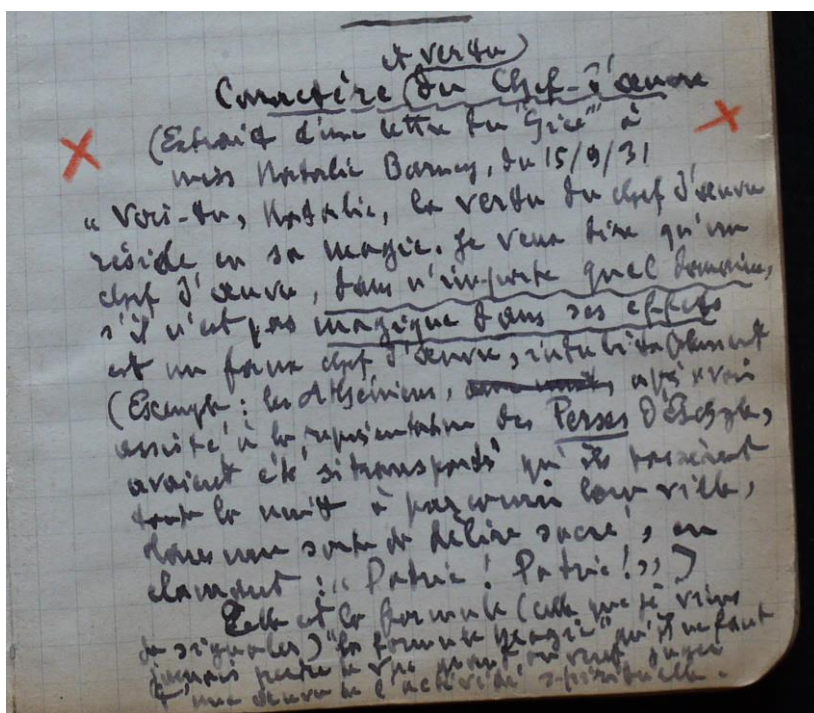 et vertu
Caractère du Chef-d'œuvre
(Extrait d'une lettre du "Grec" à
miss Natalie Barney, du 15/9/31
« Vois-tu, Natalie, la vertu du chef d'œuvre
réside en sa magie. Je veux dire qu'un
chef d'œuvre, dans n'importe quel domaine,
s'il n'est pas magique dans ses effets
est un faux chef d'œuvre, indubitablement
(Exemple : les Athéniens, après avoir
assisté à la représentation des Perses d'Eschyle,
avaient été si transportés qu'ils passèrent
toute la nuit à parcourir leur ville,
dans une sorte de délire sacré, en
clamant : « Patrie ! Patrie ! »)
Telle est la formule (celle que je viens
de signaler) "la formule magie" qu'il ne faut
jamais perdre de vue quand on veut juger
d'une œuvre de l'activité spirituelle.